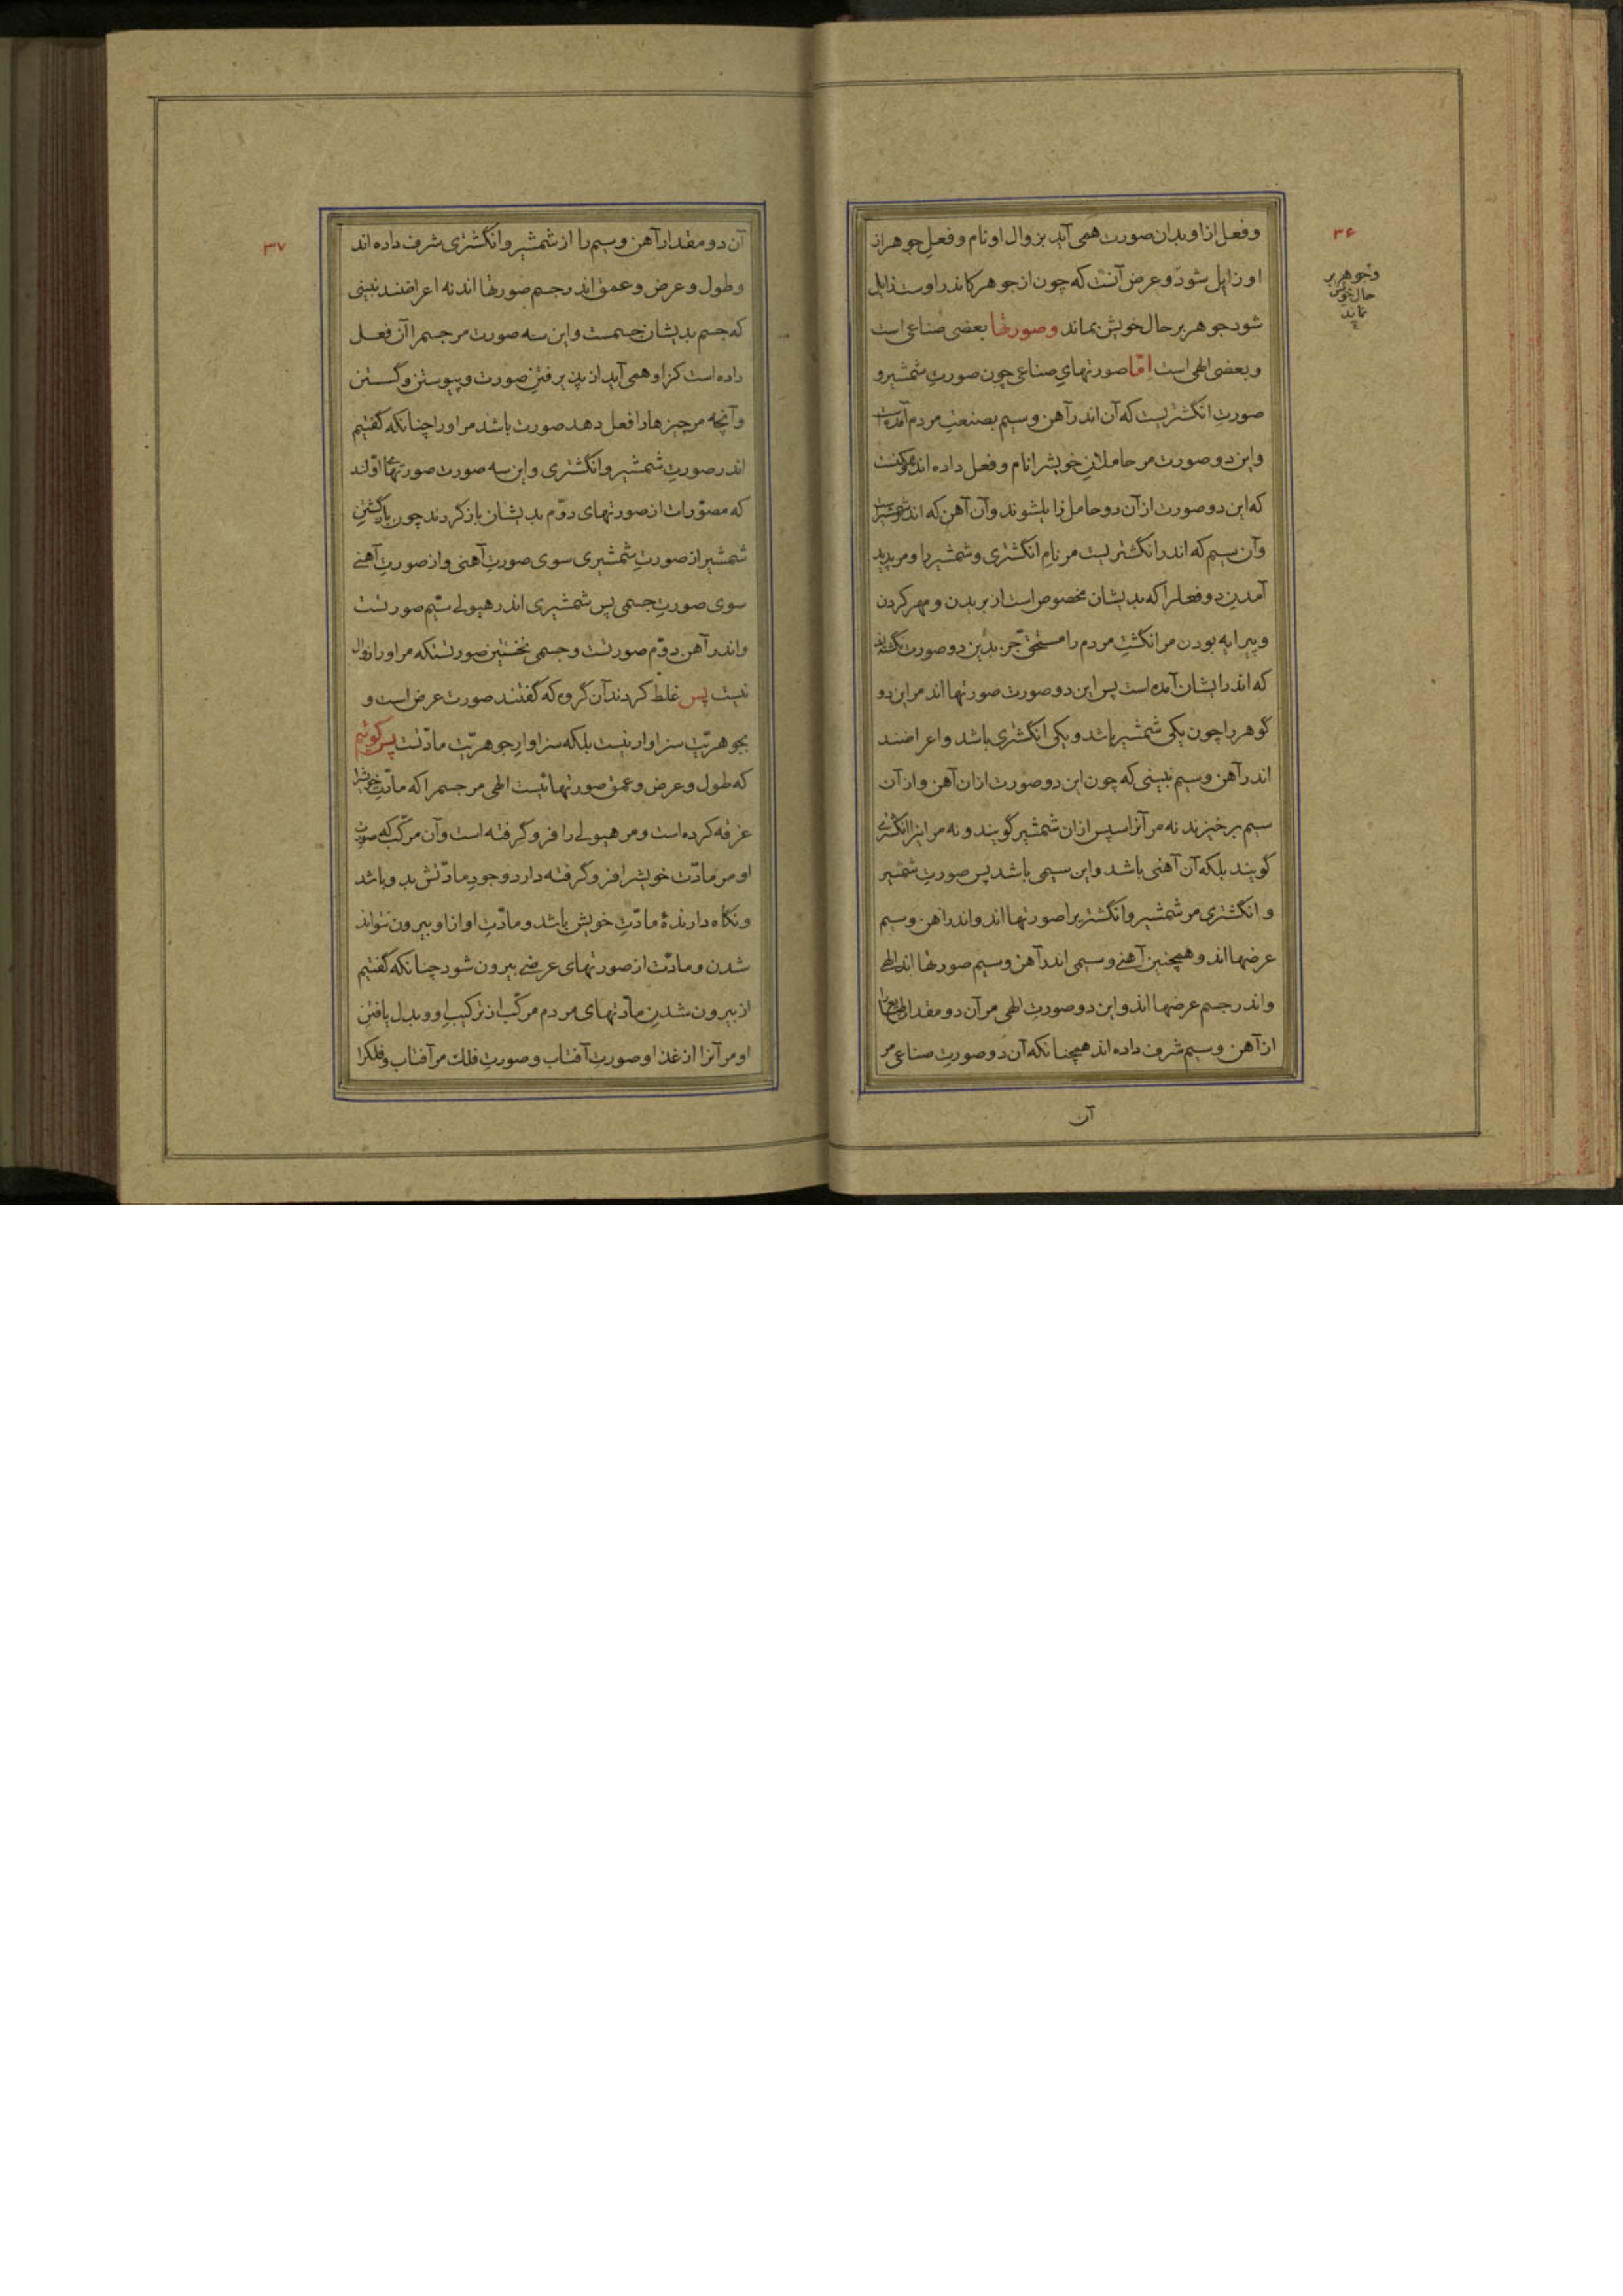 ۳۶
و فعل از او بدان صورت همی آید بزوال او نام و فعل جوهر از
او زایل شود و عرض آنست که چون از جوهر کاندر اوست زایل
شود جوهر بر حال خویش بماند و صورتها بعضی صناعی است
و بعضی الهی است امّا صورتهای صناعی چون صورت شمشیر و
صورت انگشتریست که آن اندر آهن و سیم بصنعت مردم آمده است
و این دو صورت مر حاملان خویشرا نام و فعل داده اند و ممکنست
که این دو صورت از آن دو حامل زایل شوند و آن آهن که اندر شمشیر است
و آن سیم که اندر انگشتریست مر نام انگشتری و شمشیر را و مر پدید
آمدن دو فعلرا که بدیشان مخصوص است از بریدن و مهر کردن
و پیرایه بودن مر انگشت مردم را مستحق جز بدین دو صورت نگشته اند
که اندر ایشان آمده است پس این دو صورت صورتها اند مر این دو
گوهر را چون یکی شمشیر باشد و یکی انگشتری باشد و اعراضند
اندر آهن و سیم نبینی که چون این دو صورت ازان آهن و از آن
سیم برخیزند نه مر آنرا سپس ازان شمشیر گویند و نه مر اینرا انگشتری
گویند بلکه آن آهنی باشد و این سیمی باشد پس صورت شمشیر
و انگشتری مر شمشیر و انگشتریرا صورتها اند و اندر آهن و سیم
عرضها اند و همچنین آهنی و سیمی اندر آهن و سیم صورتها اند الهی
و اندر جسم عرضها اند و این دو صورت الهی مر آن دو مقدار
از آهن و سیم شرف داده اند همچنانکه آن دو صورت صناعی مر
آن
و جوهر بر
حال خویش
نماند
۳۷
آن دو مقدار آهن و سیم را از شمشیر و انگشتری شرف داده اند
و طول و عرض و عمق اندر جسم صورتها اند نه اعراضند نبینی
که جسم بدیشان جسمست و این سه صورت مر جسمرا آن فعل
داده است کز او همی آید از پذیرفتن صورت و پیوستن و گسستن
و آنچه مر چیزها را فعل دهد صورت باشد مر او را چنانکه گفتیم
اندر صورت شمشیر و انگشتری و این سه صورت صورتهای اوّلند
که مصوّرات از صورتهای دوّم بدیشان باز گردند چون باز گشتن
شمشیر از صورت شمشیری سوی صورت آهنی و از صورت آهنی
سوی صورت جسمی پس شمشیری اندر هیولی سیّم صورتست
و اندر آهن دوّم صورتست و جسمی نخستین صورتستکه مر او را زوال
نیست پس غلط کردند آن گروه که گفتند صورت عرض است و
بجوهریّت سزاوار نیست بلکه سزاوار جوهریّت مادّتست پس گوئیم
که طول و عرض و عمق صورتهائیست الهی مر جسمرا که مادّت خویشرا
غرقه کرده است و مر هیولی را فرو گرفته است و آن مرکّب که صورت
او مر مادّت خویشرا فرو گرفته دارد وجود مادّتش بدو باشد
و نگاه دارندهٔ مادّت خویش باشد و مادّت او از او بیرون نتواند
شدن و مادّت از صورتهای عرضی بیرون شود چنانکه گفتیم
از بیرون شدن مادّتهای مردم مرکّب از ترکیب او و بدل یافتن
او مر آنرا از غذا و صورت آفتاب و صورت فلک مر آفتاب و فلکرا